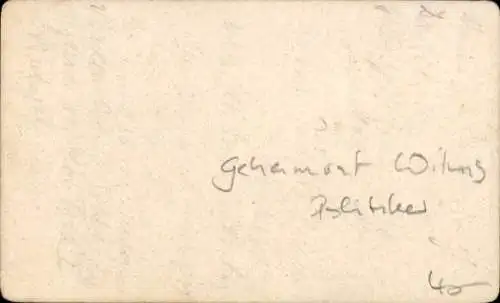 Geheimrat Witting
Politiker
40